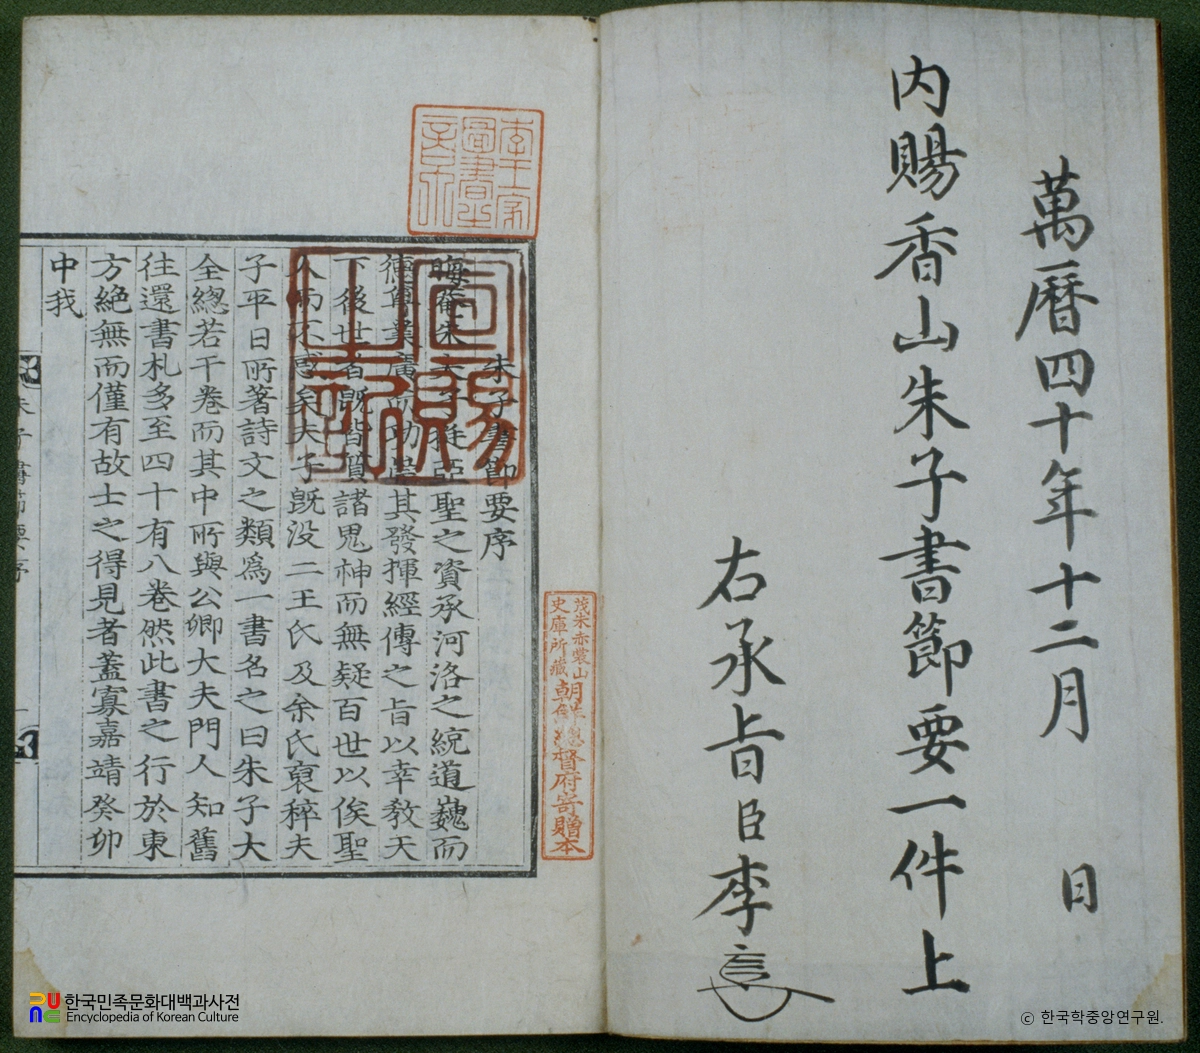 萬曆四十年十二月 日
內賜香山朱子書節要一件上
右承旨臣李
李王家圖書之章
宣賜之記
茂朱赤裳山
史庫所藏
朝鮮總督府寄贈本
朱子書節要序
晦菴朱夫子挺亞聖之資承河洛之統道巍而
德尊業廣而功崇其發揮經傳之旨以幸敎天
下後世者旣皆質諸鬼神而無疑百世以俟聖
人而不惑矣夫子旣沒二王氏及余氏裒稡夫
子平日所著詩文之類爲一書名之曰朱子大
全總若干卷而其中所與公卿大夫門人知舊
往還書札多至四十有八卷然此書之行於東
方絶無而僅有故士之得見者蓋寡嘉靖癸卯
中我
朱子書節要序
한국민족문화대백과사전
Encyclopedia of Korean Culture
ⓒ 한국학중앙연구원.